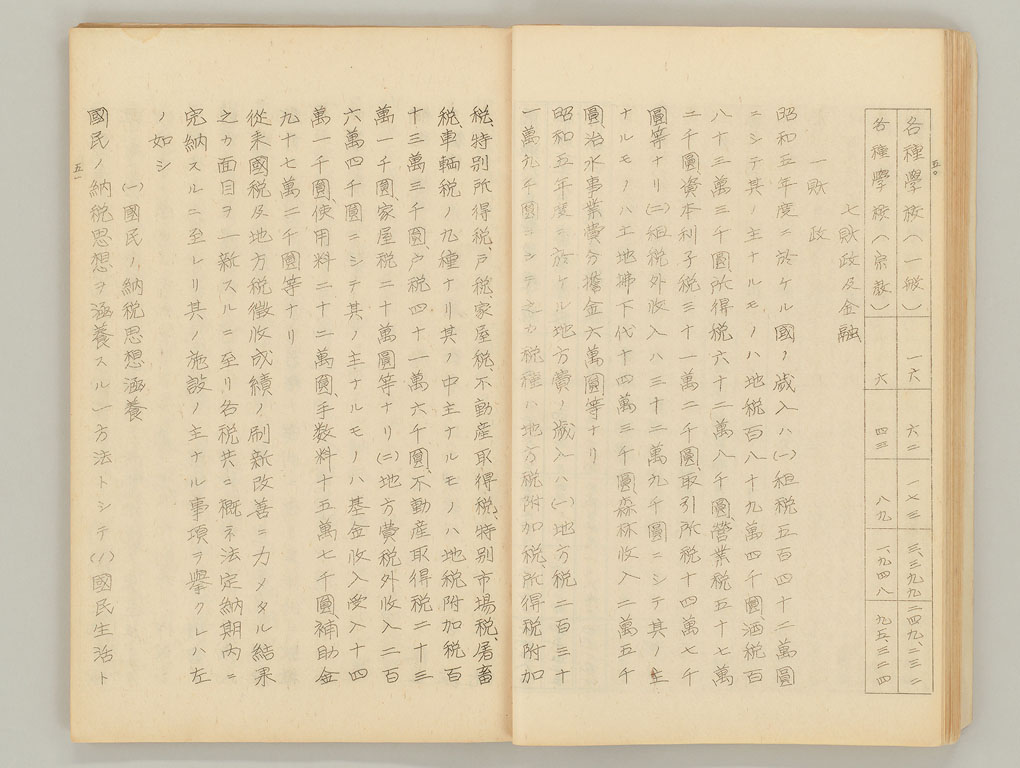 五〇
各種學校（一般） 一六 六二 一七三 三、三九九 二四九、二三二
各種學校（宗教） 六 四三 八九 一、九四八 九五、三二四
七財政及金融
一財政
昭和五年度ニ於ケル國ノ歳入ハ(一)租税五百四十二萬圓
ニシテ其ノ主ナルモノハ地税百八十九萬四千圓酒税百
八十三萬三千圓所得税六十二萬八千圓營業税五十七萬
二千圓資本利子税三十一萬二千圓取引所税十四萬七千
圓等ナリ(二)租税外收入ハ三十二萬九千圓ニシテ其ノ主
ナルモノハ土地拂下代十四萬三千圓森林收入二萬五千
圓治水事業費分擔金六萬圓等ナリ
昭和五年度ニ於ケル地方費ノ歳入ハ(一)地方税二百三十
一萬九千圓ニシテ之カ税種ハ地方税附加税、所得税附加
税、特別所得税、戸税、家屋税、不動産取得税、特別市場税、屠畜
税、車輌税ノ九種ナリ其ノ中主ナルモノハ地税附加税百
十三萬三千圓、戸税四十一萬六千圓、不動産取得税二十三
萬一千圓、家屋税二十萬圓等ナリ(二)地方費税外收入二百
六萬四千圓ニシテ其ノ主ナルモノハ基金收入受入十四
萬一千圓、使用料二十二萬圓、手数料十五萬七千圓、補助金
九十七萬二千圓等ナリ
從来國税及地方税徴收成績ノ刷新改善ニ力メタル結果
之カ面目ヲ一新スルニ至リ各税共ニ概ネ法定納期内ニ
完納スルニ至レリ其ノ施設ノ主ナル事項ヲ擧クレハ左
ノ如シ
(一)國民ノ納税思想涵養
國民ノ納税思想ヲ涵養スル一方法トシテ(ノ)國民生活ト
五一